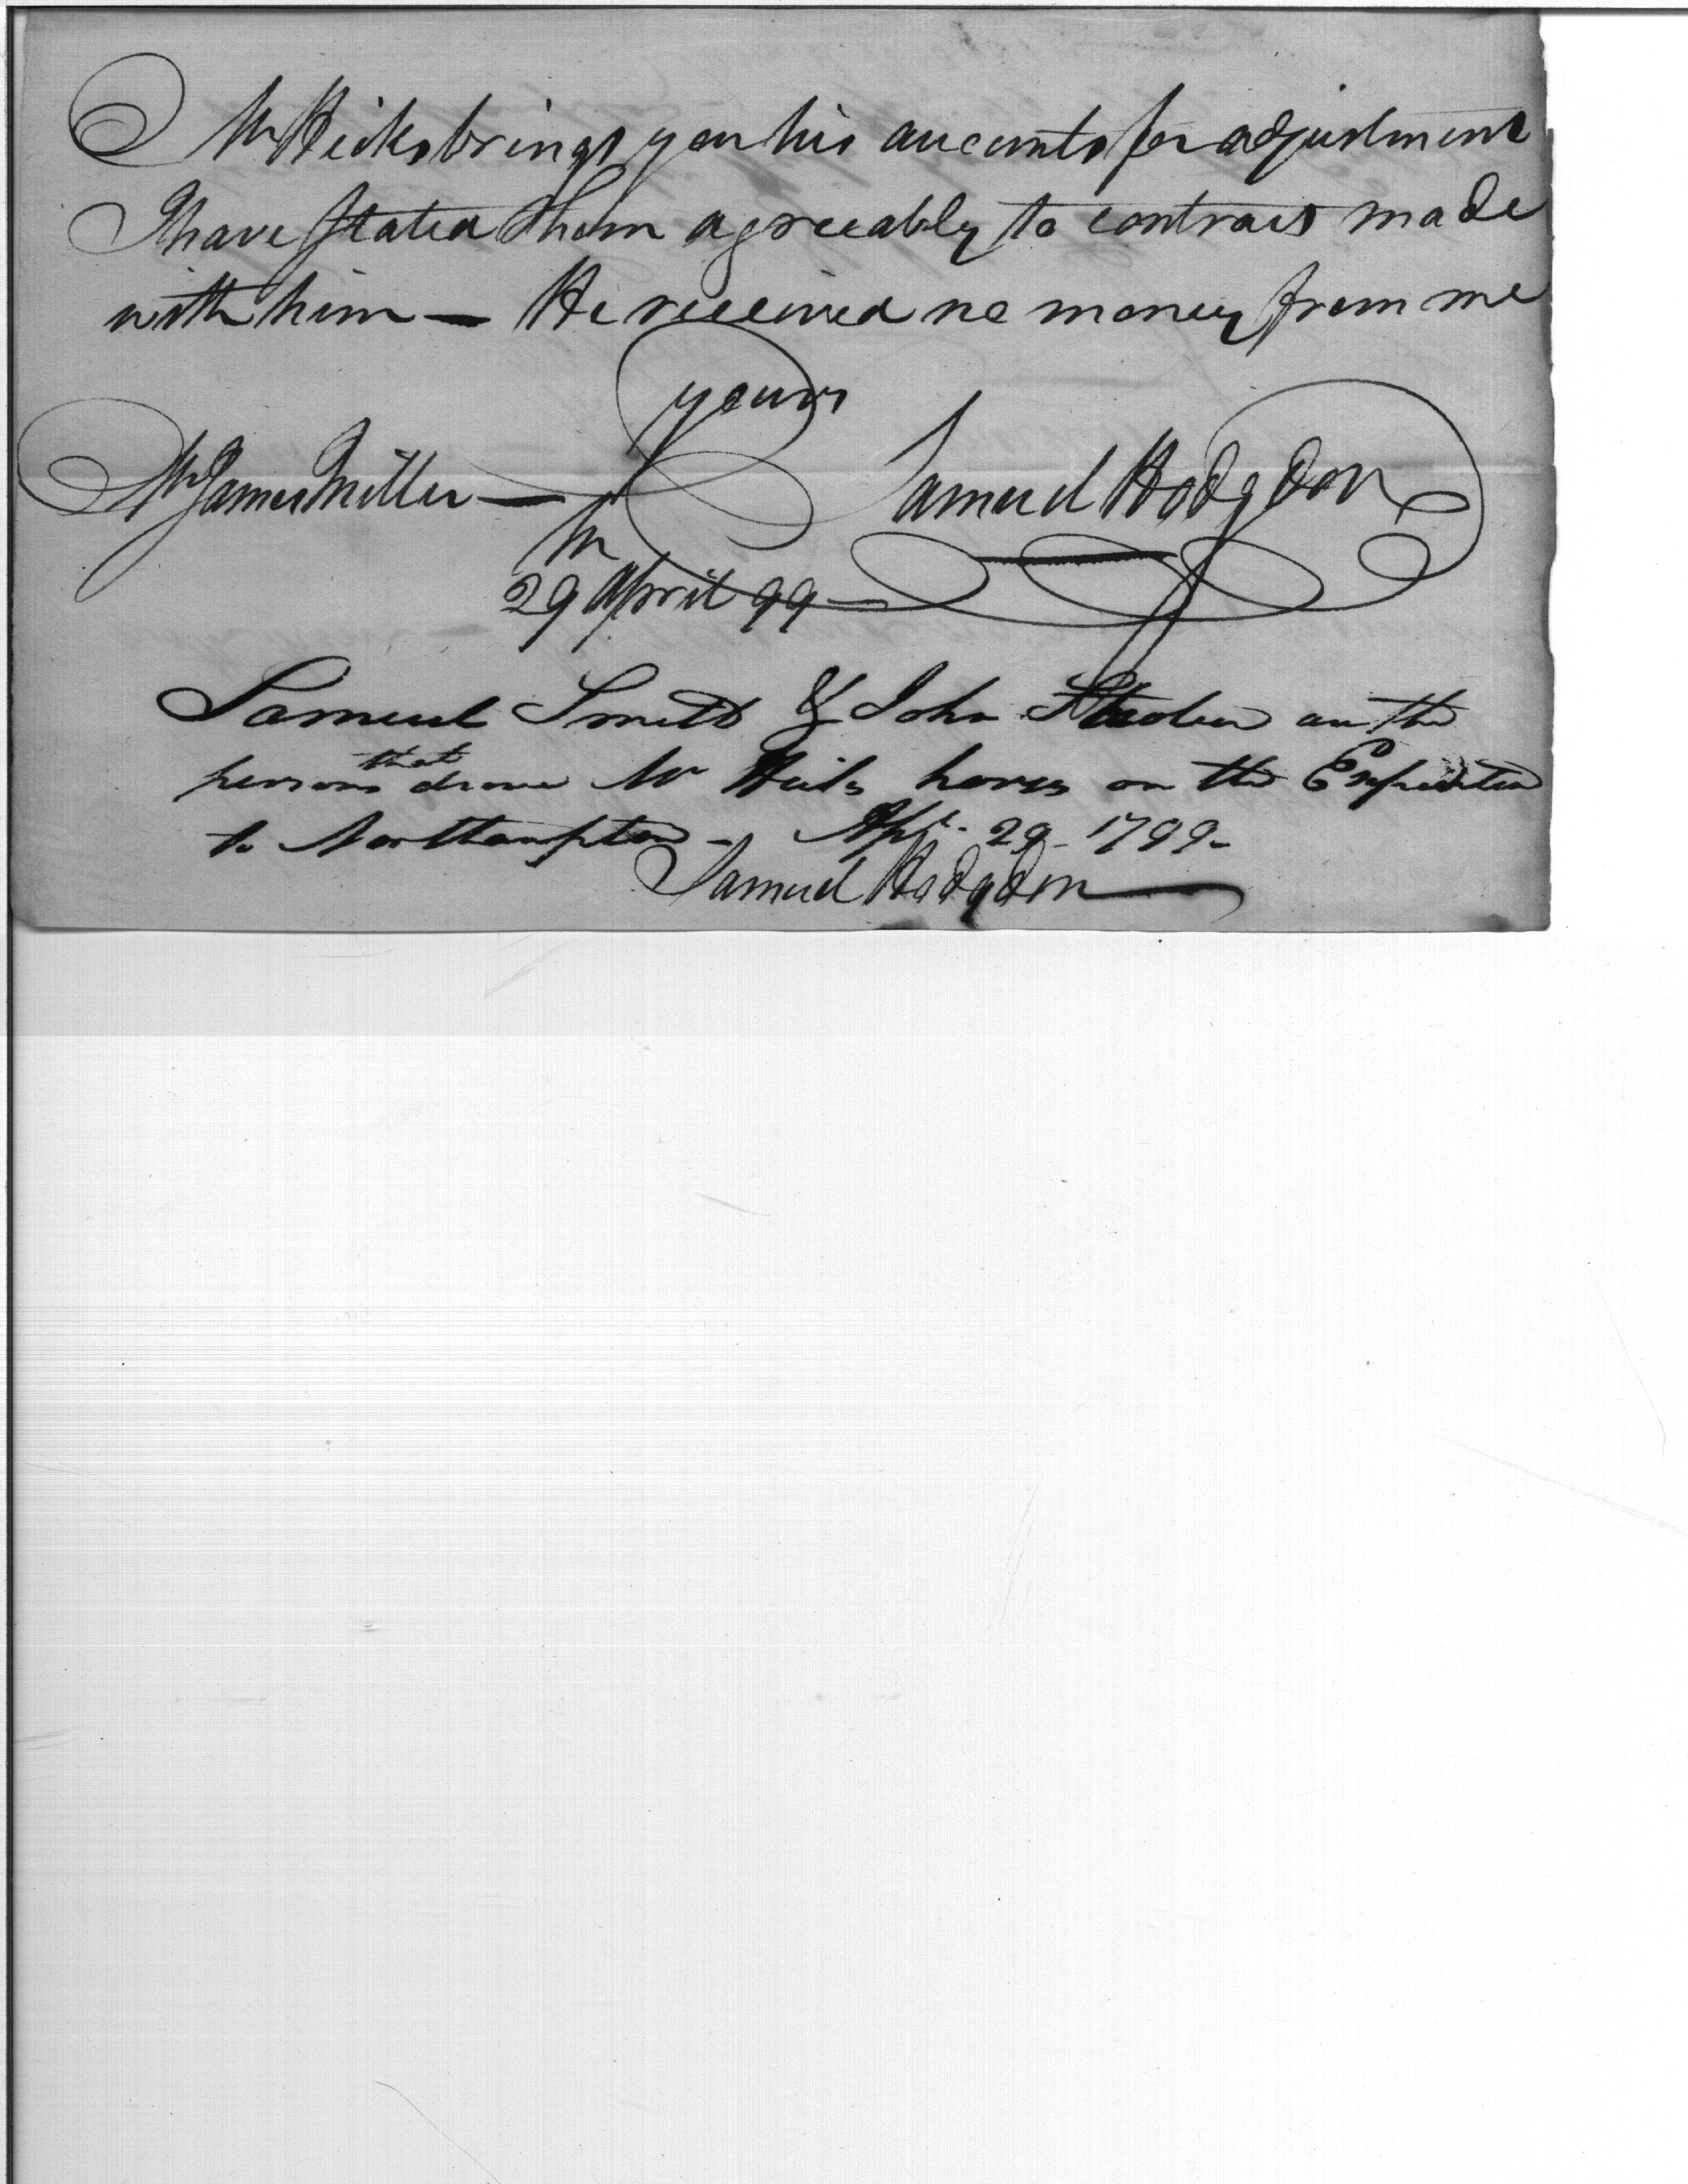 Mr Hicks brings you his accounts for adjustment
I have stated them agreeably to contract made
with him — He received no money from me
yours
Samuel Hodgdon
Mr James Miller —
29 April 99 —
Samuel Smith & John are the
persons that drove Mr Hicks horses on the Expedition
to Northampton - Apl. 29 - 1799 -
Samuel Hodgdon